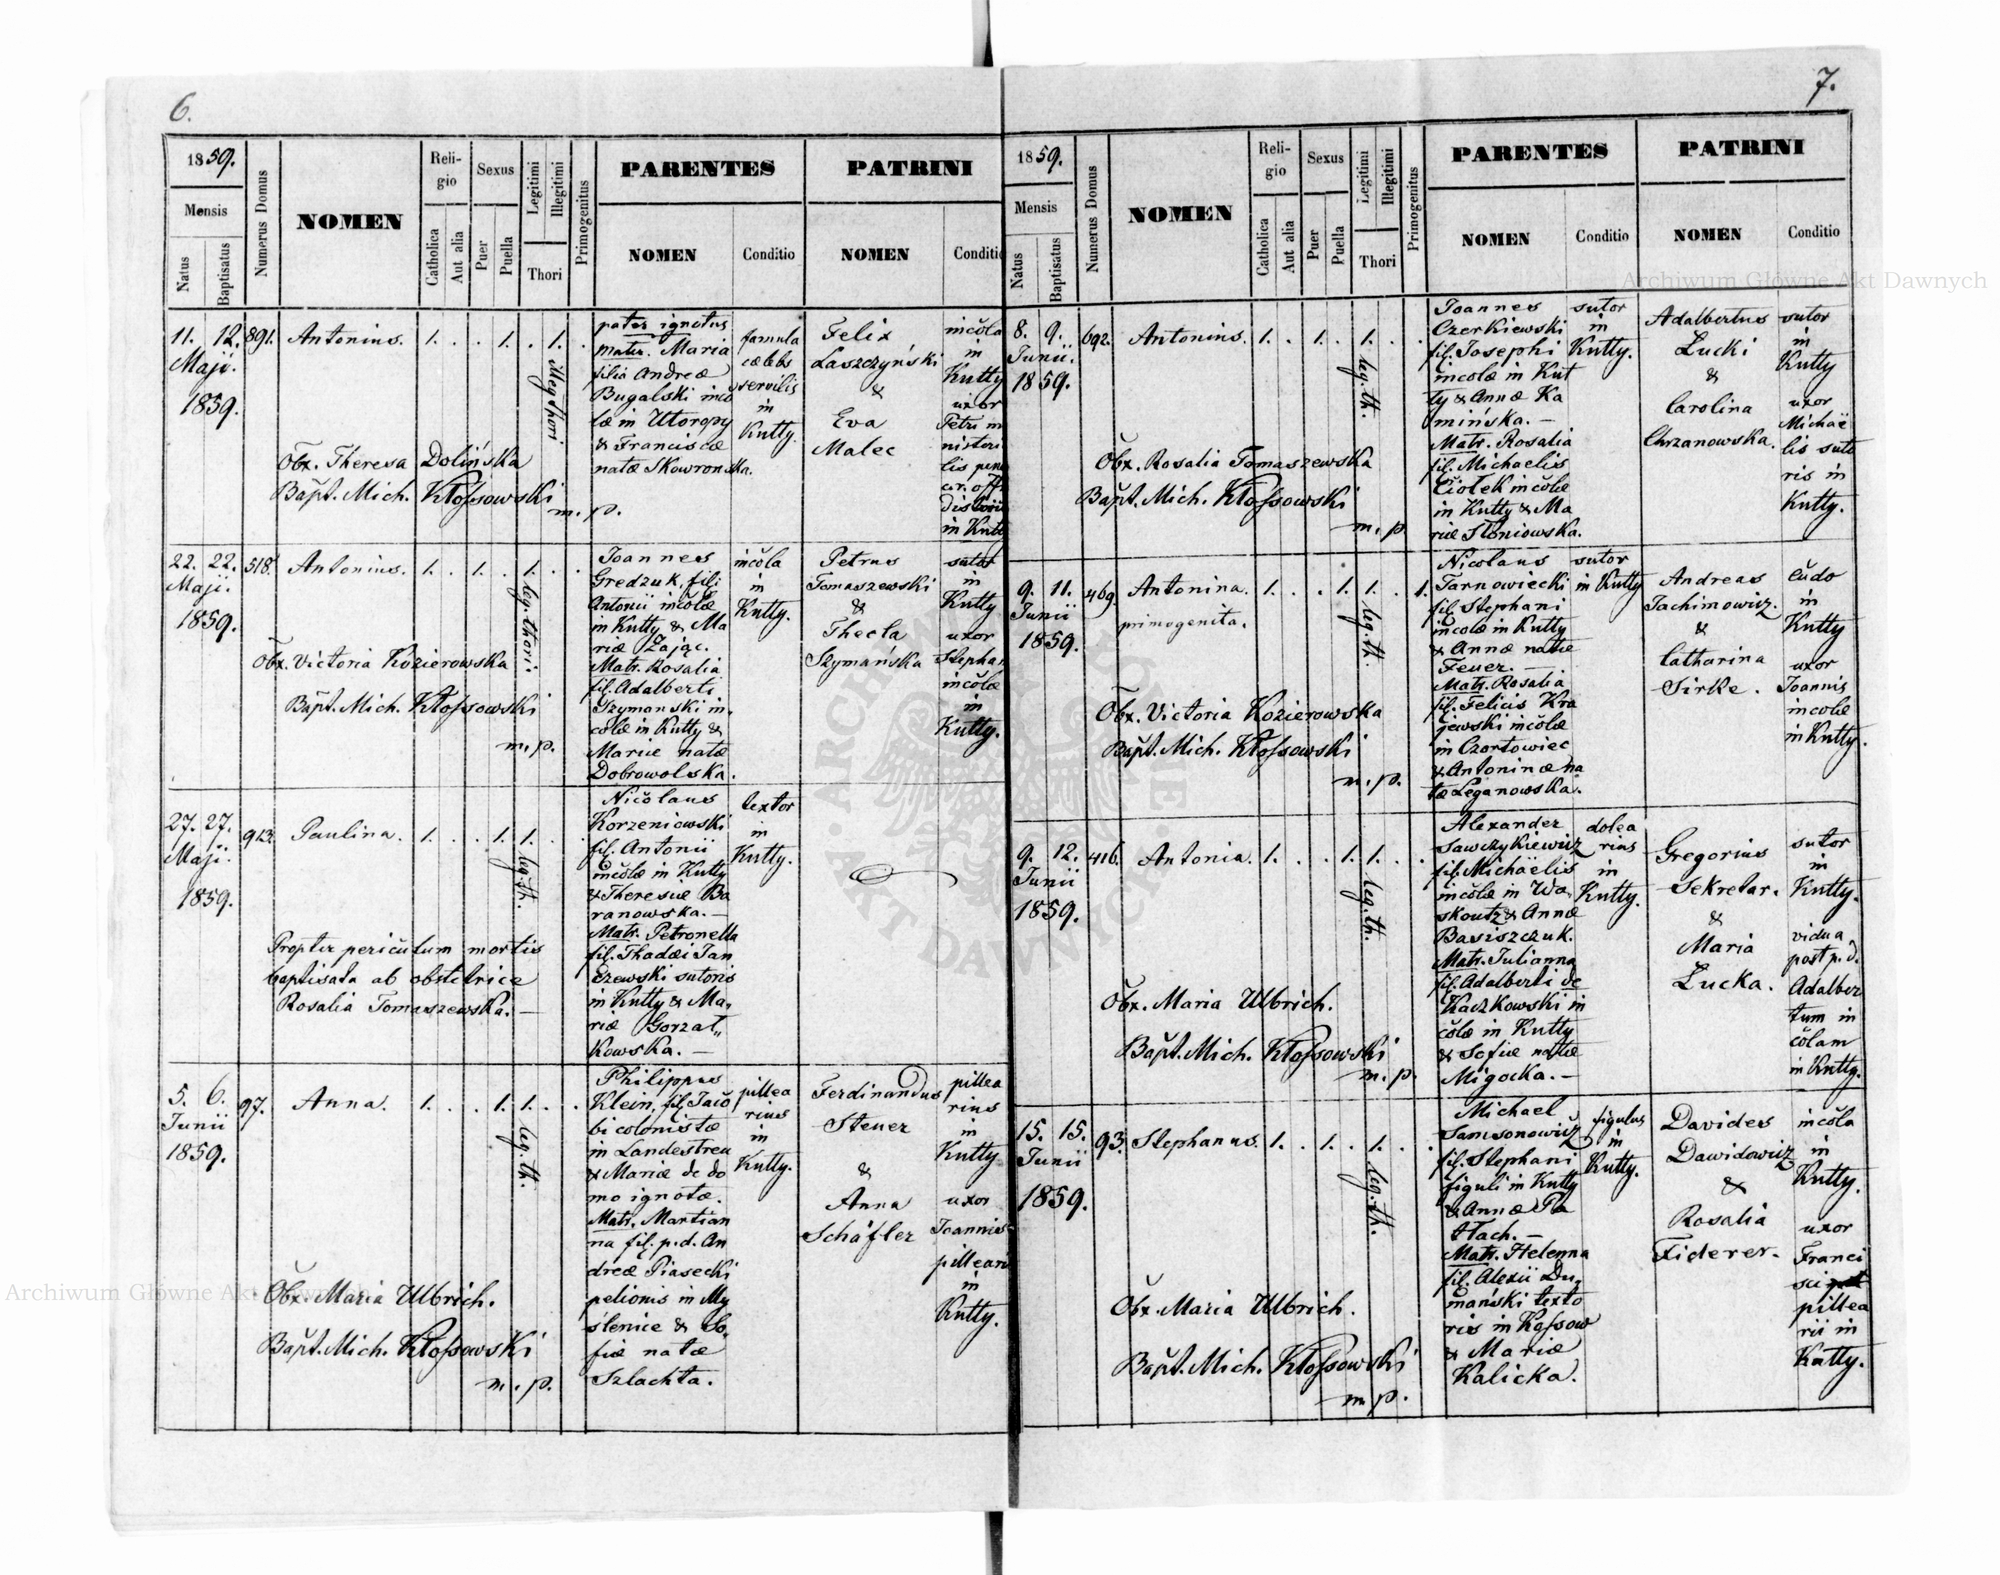 6.
1859.
Mensis
Natus
Baptisatus
Numerus Domus
NOMEN
Reli-
gio
Catholica
Aut alia
Sexus
Puer
Puella
Legitimi
Illegitimi
Thori
Primogenitus
PARENTES
NOMEN
Conditio
PATRINI
NOMEN
Conditio
11. 12. 891.
Maji.
1859.
Antonius. 1. . 1. . 1. .
illeg. thori
Obx. Theresa Dolińska
Bapt. Mich. Kłossowski
m. p.
pater ignotus
mater. Maria
filia Andreæ
Bugalski inco
læ in Utoropy
& Franciscæ
natæ Skowronska.
famula
cælebs
servilis
in
Kutty.
Felix
Laszczyński
&
Eva
Malec
incola
in
Kutty
uxor
Petri mi
nisteri
lis pen
in Kutt
22. 22. 518.
Maji.
1859.
Antonius. 1. . 1. . 1. .
leg. thori:
Obx. Victoria Kozierowska
Bapt. Mich. Kłossowski
m. p.
Joannes
Gredzuk, fil:
Antonii incolæ
in Kutty & Ma
riæ Zając.
Matr. Rosalia
fil. Adalberti
Szymanski in.
colæ in Kutty &
Mariæ natæ
Dobrowolska.
incola
in
Kutty.
Petrus
Tomaszewski
&
Thecla
Szymańska
sutor
in
Kutty
uxor
Stephan
incolæ
in
Kutty.
27. 27. 913.
Maji.
1859.
Paulina. 1. . . 1. 1. .
leg. th.
Propter periculum mortis
baptisata ab obstetrice
Rosalia Tomaszewska. —
Nicolaus
Korzeniowski
fil. Antonii
incolæ in Kutty
& Theresiæ Ba
ranowska. —
Matr. Petronella
fil. Thadæi Jan
czewski sutoris
in Kutty & Ma.
riæ Gorzał„
kowska. —
textor
in
Kutty.
5. 6. 97.
Junii
1859.
Anna. 1. . . 1. 1. .
leg. th.
Obx. Maria Ulbrich.
Bapt. Mich. Kłossowski
m. p.
Philippus
Klein, fil. Jaco
bi colonistæ
in Landestreu
& Mariæ de do
mo ignotæ.
Matr. Martian
na fil. p. d. An
dreæ Piasecki
pelionis in My
ślenice & So.
fiæ natæ
Szlachta.
pillea
rius
in
Kutty.
Ferdinandus
Steuer
&
Anna
Schäfler
pillea
rius
in
Kutty
uxor
Joannis
pilleari
in
Kutty.
7.
1859.
Mensis
Natus
Baptisatus
Numerus Domus
NOMEN
Reli-
gio
Catholica
Aut alia
Sexus
Puer
Puella
Legitimi
Illegitimi
Thori
Primogenitus
PARENTES
NOMEN
Conditio
PATRINI
NOMEN
Conditio
8. 9. 692.
Junii.
1859.
Antonius. 1. . 1. . 1. .
leg. th.
Obx. Rosalia Tomaszewska
Bapt. Mich. Kłossowski
m. p.
Joannes
Czerkiewski
fil. Josephi
incolæ in Kut
ty & Annæ Ka
mińska. —
Matr. Rosalia
fil. Michaelis
Ciołek incolæ
in Kutty & Ma
riæ Słoniowska.
sutor
in
Kutty.
Adalbertus
Łucki
&
Carolina
Chrzanowska.
sutor
in
Kutty
uxor
Michaë
lis suto
ris in
Kutty.
9. 11. 469.
Junii
1859.
Antonina. 1. . . 1. 1. . 1.
primogenita.
leg. th.
Obx. Victoria Kozierowska
Bapt. Mich. Kłossowski
m. p.
Nicolaus
Tarnowiecki
fil. Stephani
incolæ in Kutty
& Annæ natæ
Feuer. —
Matr. Rosalia
fil. Felicis Kra
jewski incolæ
in Czortowiec
& Antoninæ na
tæ Leganowska.
sutor
in Kutty
Andreas
Jachimowicz.
&
Catharina
Sirke.
cudo
in
Kutty
uxor
Joannis
incolæ
in Kutty.
9. 12. 416.
Junii
1859.
Antonia. 1. . . 1. 1. .
leg. th.
Obx. Maria Ulbrich.
Bapt. Mich. Kłossowski
m. p.
Alexander
Sawczykiewicz
fil. Michäelis
incolæ in Wa
skoutz & Annæ
Basiszczuk.
Matr. Julianna
fil. Adalberti de
Kaczkowski in
colæ in Kutty
& Sofiæ natæ
Migocka. —
dolea
rius
in
Kutty.
Gregorius
Sekretar.
&
Maria
Łucka.
sutor
in
Kutty.
vidua
post p. d.
Adalber
tum in
colam
in Kutty.
15. 15. 93.
Junii
1859.
Stephanus. 1. . 1. . 1. .
leg. th.
Obx. Maria Ulbrich.
Bapt. Mich. Kłossowski
m. p.
Michael
Samsonowicz
fil. Stephani
figuli in Kutty
& Annæ Pa
tłach. —
Matr. Helenna
fil. Alexii Du.
mański texto
ris in Kossow
& Mariæ
Kalicka.
figulus
in
Kutty.
Davides
Dawidowicz
&
Rosalia
Fiderer.
incola
in
Kutty.
uxor
Franci
sci
pillea
rii in
Kutty.
Archiwum Główne Akt Dawnych
Archiwum Główne Akt Dawnych
ARCHIWUM GŁÓWNE AKT DAWNYCH